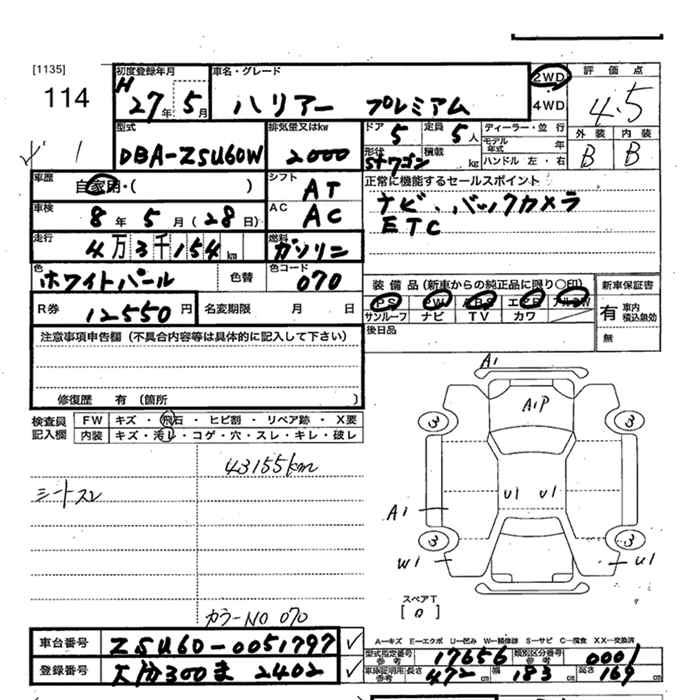 [1135]
114
初度登録年月
H 27年 5月
車名・グレード
ハリアー プレミアム
2WD
4WD
評価点
4.5
外装 内装
B B
型式
DBA-ZSU60W
排気量又はkw
2000
ドア 5
定員 5人
形状 Stワゴン
積載 kg
ディーラー・並行
モデル年式 年
ハンドル 左・右
車歴
自家用・( )
シフト
AT
車検
8年 5月(28日)
AC
AC
正常に機能するセールスポイント
ナビ、バックカメラ
ETC
走行
4万3千154km
燃料
ガソリン
色
ホワイトパール
色替
色コード
070
R券
12550円
名変期限 月 日
装備品(新車からの純正品に限り○印)
PS PW ABS エアB アルミW
サンルーフ ナビ TV カワ
後日品
新車保証書
有 車内積込無効
無
注意事項申告欄(不具合内容等は具体的に記入して下さい)
修復歴 有(箇所 )
検査員記入欄
FW キズ・飛石・ヒビ割・リペア跡・X要
内装 キズ・汚れ・コゲ・穴・スレ・キレ・破レ
43155km
シートスレ
カラーNO 070
A1
A1P
3
3
U1 U1
A1
3
3
W1
U1
スペアT
[ 0 ]
A―キズ E―エクボ U―凹み W―補修跡 S―サビ C―腐食 XX―交換済
車台番号
ZSU60-0051797
登録番号
大分300ま2402
型式指定番号 参考
17656
類別区分番号 参考
0001
車検証明用 参考
長さ 472cm
幅 183cm
高さ 169cm